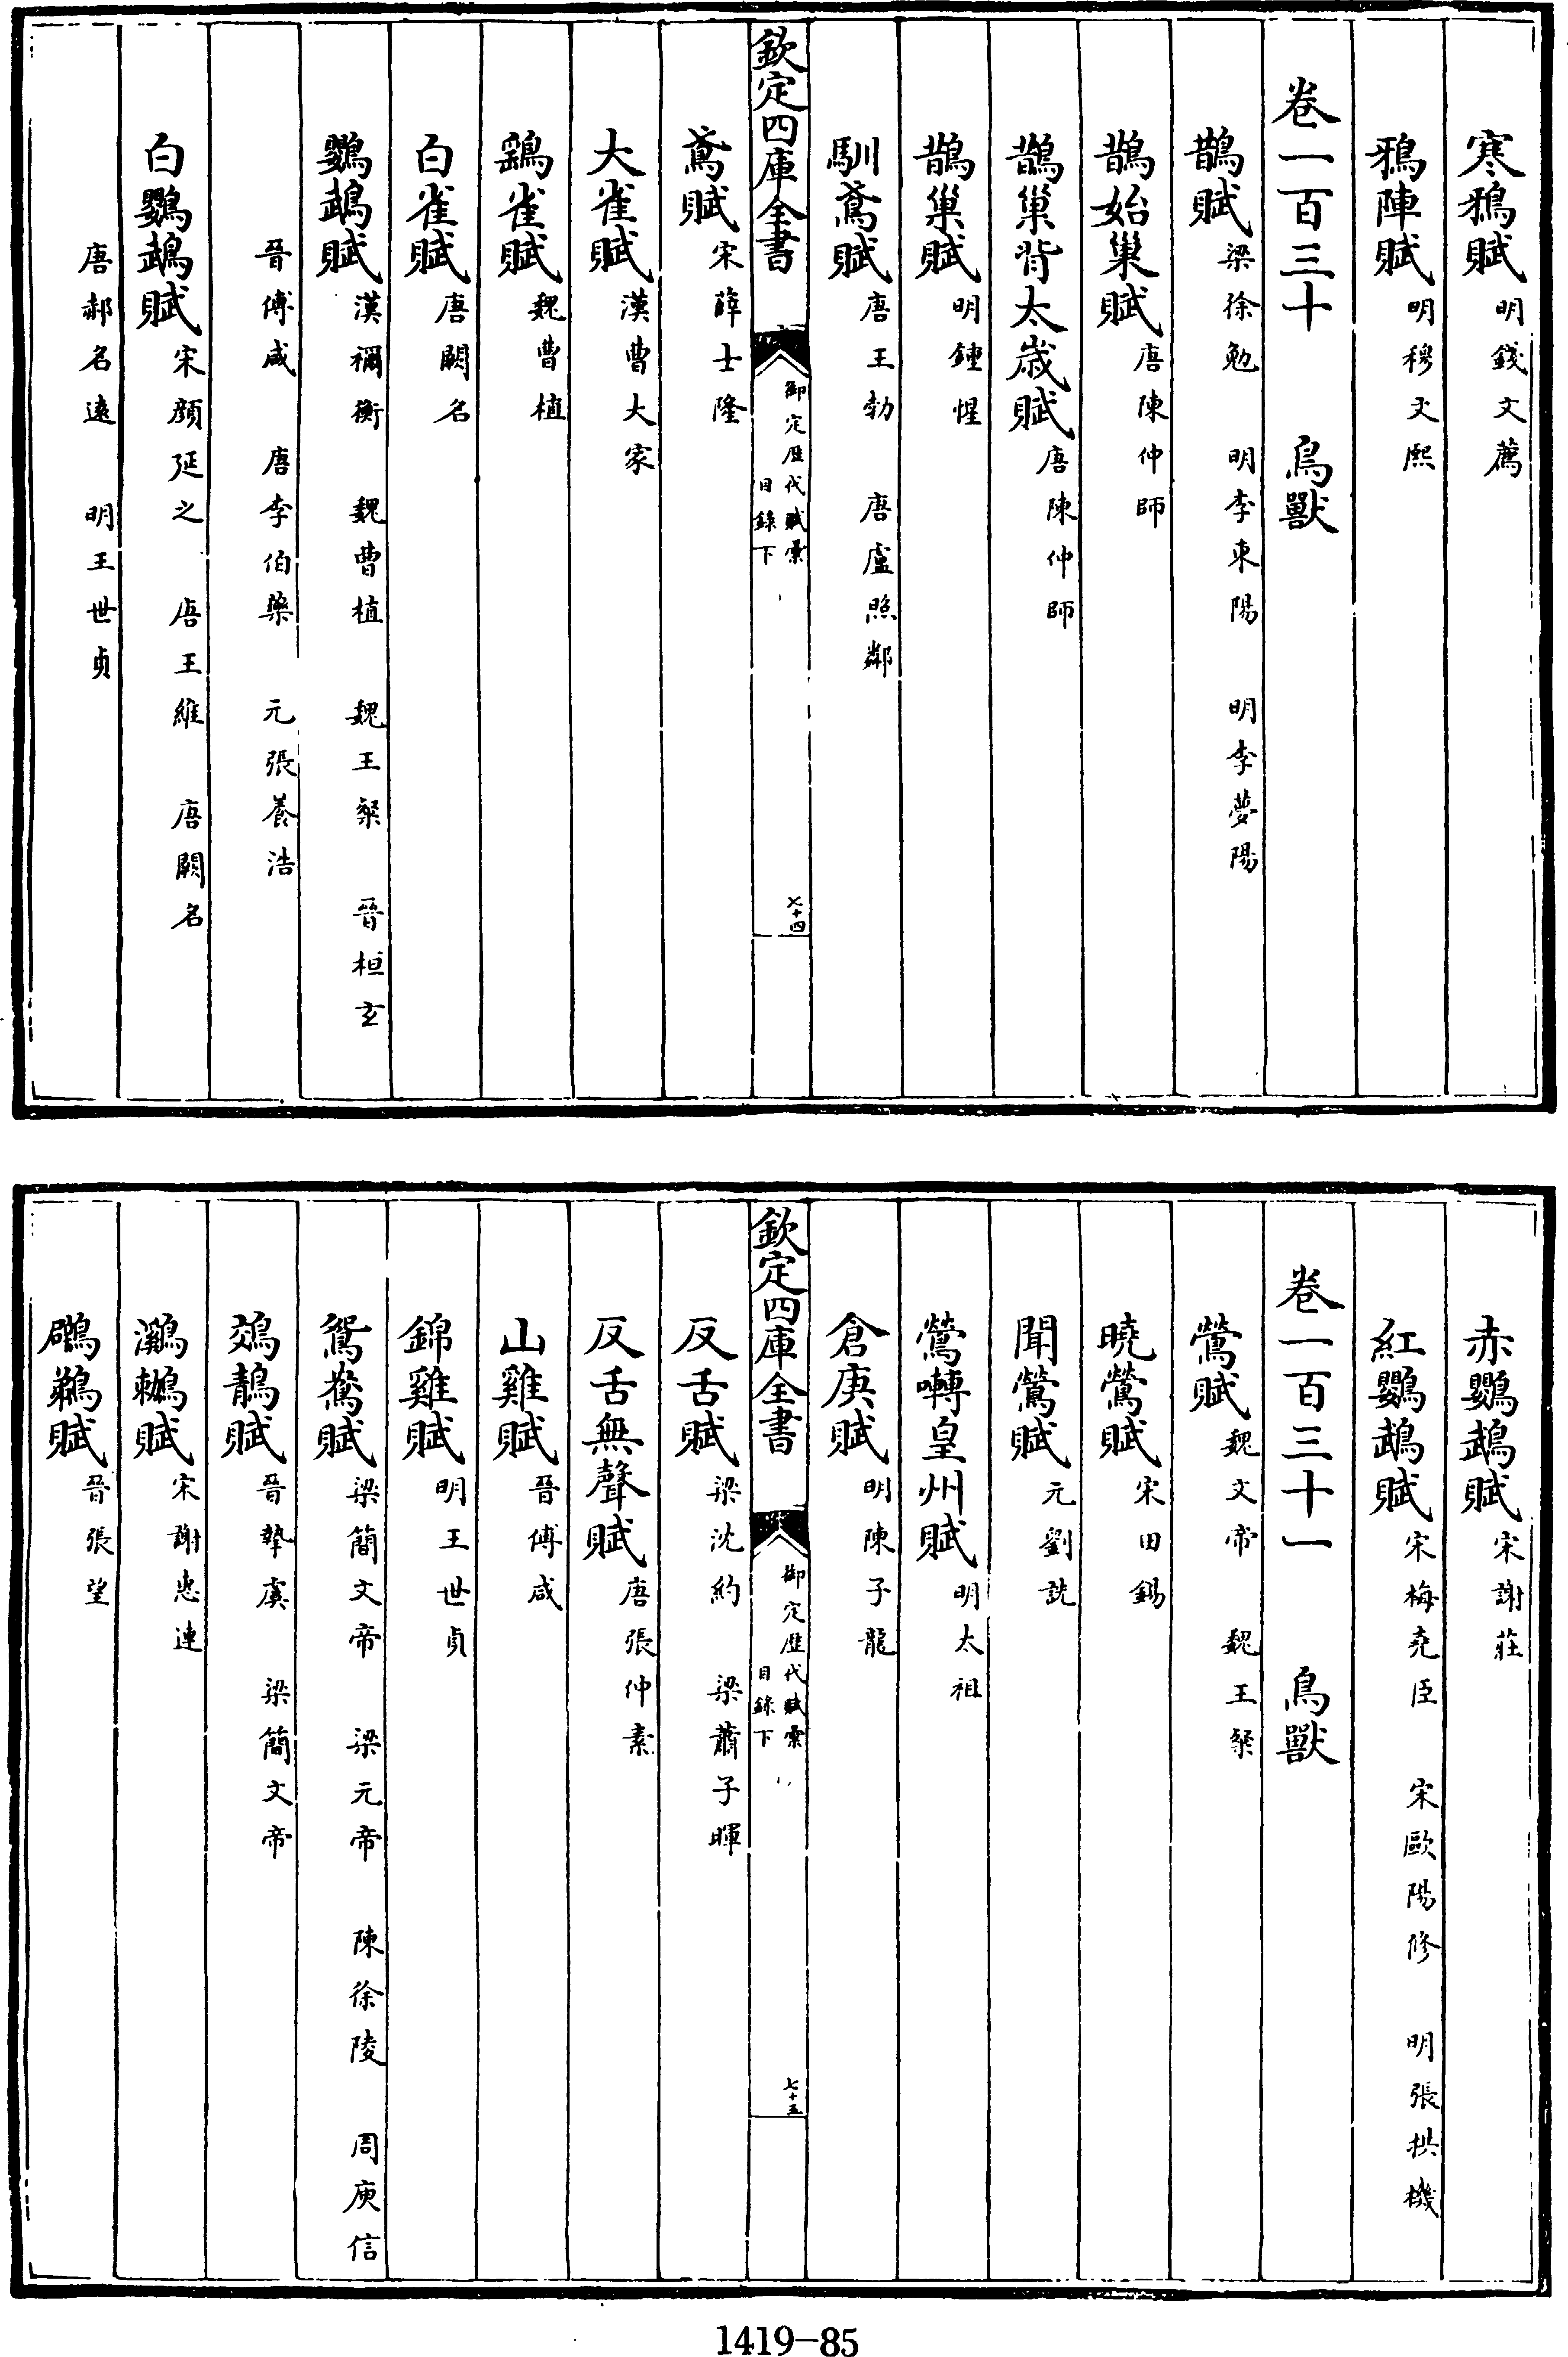 寒鴉賦 明錢文薦
鴉陣賦 明穆文熙
卷一百三十 鳥獸
鵲賦 梁徐勉 明李東陽 明李夢陽
鵲始巢賦 唐陳仲師
鵲巢背太歲賦 唐陳仲師
鵲巢賦 明鍾惺
馴鳶賦 唐王勃 唐盧照鄰
欽定四庫全書 御定歷代賦彙 目錄下 七十四
鳶賦 宋薛士隆
大雀賦 漢曹大家
鷂雀賦 魏曹植
白雀賦 唐闕名
鸚鵡賦 漢禰衡 魏曹植 魏王粲 晉桓玄
晉傅咸 唐李伯藥 元張養浩
白鸚鵡賦 宋顏延之 唐王維 唐闕名
唐郝名遠 明王世貞
赤鸚鵡賦 宋謝莊
紅鸚鵡賦 宋梅堯臣 宋歐陽修 明張拱機
卷一百三十一 鳥獸
鶯賦 魏文帝 魏王粲
曉鶯賦 宋田錫
聞鶯賦 元劉詵
鶯囀皇州賦 明太祖
倉庚賦 明陳子龍
欽定四庫全書 御定歷代賦彙 目錄下 七十五
反舌賦 梁沈約 梁蕭子暉
反舌無聲賦 唐張仲素
山雞賦 晉傅咸
錦雞賦 明王世貞
鴛鴦賦 梁簡文帝 梁元帝 陳徐陵 周庾信
鵁鶄賦 晉摯虞 梁簡文帝
鸂鶒賦 宋謝惠連
鸊鵜賦 晉張望
1419-85